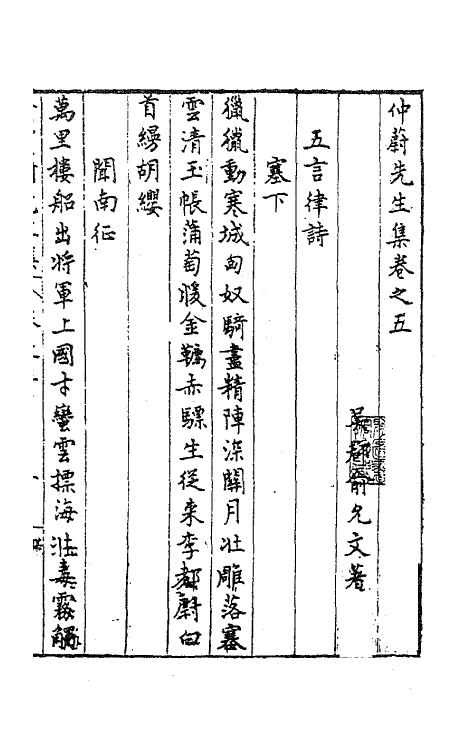 仲蔚先生集卷之五
吳郡俞允文著
五言律詩
塞下
獵獵動寒城匈奴騎盡精陣深關月壯雕落塞
雲清玉帳蒲萄暖金韉赤驃生從来李都尉白
首縵胡纓
聞南征
萬里樓船出将軍上國才蠻雲摽海壯毒霧觸